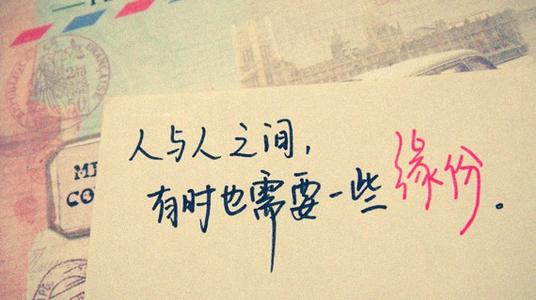 人与人之间，
有时也需要一些缘份。
RÉPUBLIQUE
FRANÇAISE